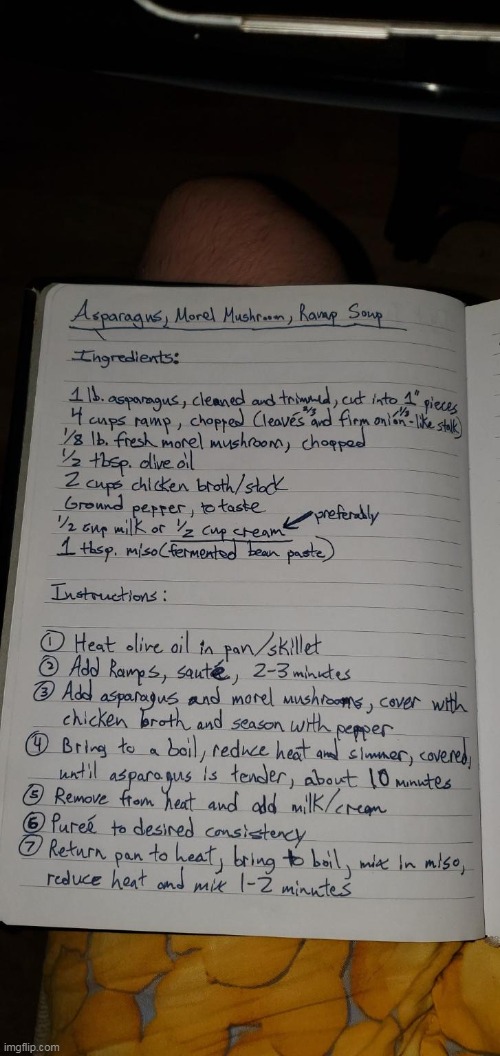 Asparagus, Morel Mushroom, Ramp Soup
Ingredients:
1 lb. asparagus, cleaned and trimmed, cut into 1" pieces
4 cups ramp, chopped (leaves 2/3 and firm onion-like stalk 1/3)
1/8 lb. fresh morel mushroom, chopped
1/2 tbsp. olive oil
2 cups chicken broth/stock
Ground pepper, to taste
1/2 cup milk or 1/2 cup cream preferably
1 tbsp. miso (fermented bean paste)
Instructions:
① Heat olive oil in pan/skillet
② Add Ramps, sauté, 2-3 minutes
③ Add asparagus and morel mushrooms, cover with
chicken broth and season with pepper
④ Bring to a boil, reduce heat and simmer, covered,
until asparagus is tender, about 10 minutes
⑤ Remove from heat and add milk/cream
⑥ Pureé to desired consistency
⑦ Return pan to heat, bring to boil, mix in miso,
reduce heat and mix 1-2 minutes
imgflip.com